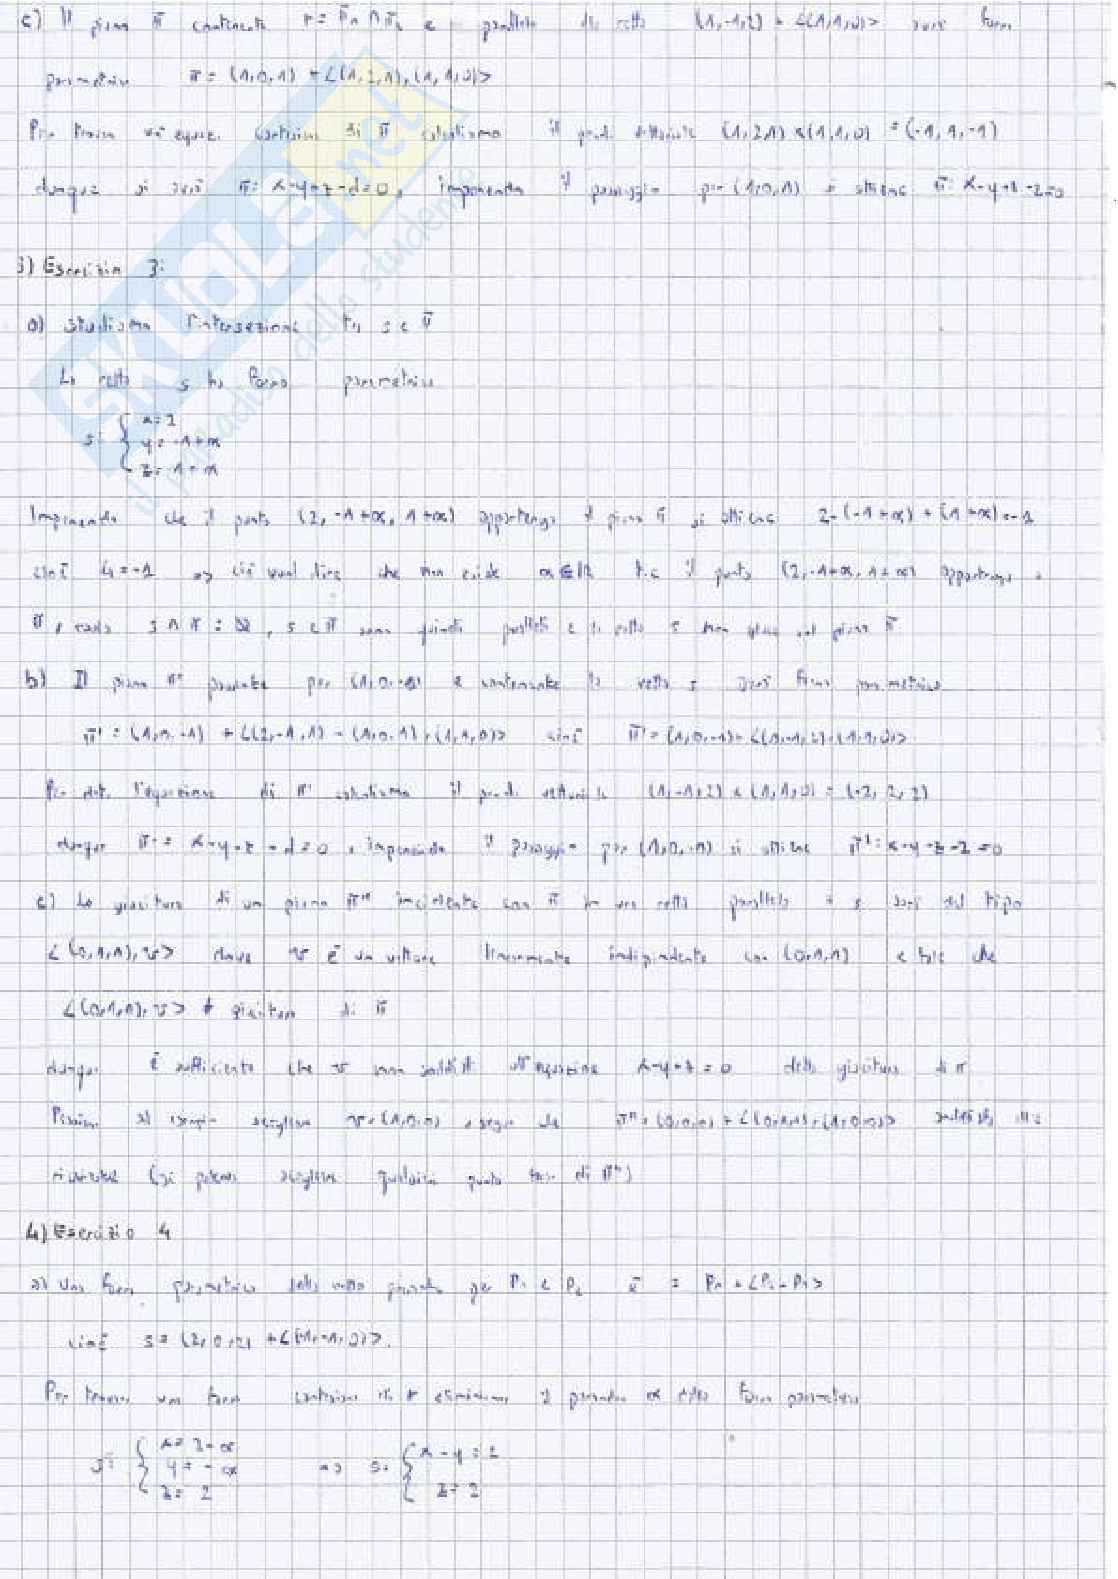 c) Il piano π contenente r = π₁ ∩ π₂ e parallelo alla retta (1,-1,2) + <(1,1,0)> avrà forma
parametrica π = (1,0,1) + <(1,2,1),(1,1,0)>
Per trovare un'equaz. cartesiana di π calcoliamo il prod. vettoriale (1,2,1) x (1,1,0) = (-1,1,-1)
dunque si avrà π: x-y+z-d=0, imponendo il passaggio per (1,0,1) si ottiene π: x-y+z-2=0
3) Esercizio 3:
a) studiamo l'intersezione tra s e π
La retta s ha forma parametrica
s: { x=2
y=-1+α
z=1+α
Imponendo che il punto (2,-1+α,1+α) appartenga al piano π si ottiene 2-(-1+α)+(1+α)=-1
cioè 4=-1 => ciò vuol dire che non esiste α∈ℝ t.c. il punto (2,-1+α,1+α) appartenga a
π, s ∩ π = Ø, s e π sono quindi paralleli e la retta s non giace sul piano π
b) Il piano π' passante per (1,0,-1) e contenente la retta s avrà forma parametrica
π' = (1,0,-1) + <(2,-1,1) - (1,0,-1),(1,1,0)> cioè π' = (1,0,-1) + <(1,-1,2),(1,1,0)>
Per det. l'equazione di π' calcoliamo il prod. vettoriale (1,-1,2) x (1,1,0) = (-2,2,2)
dunque π' = x-y-z-d=0, imponendo il passaggio per (1,0,-1) si ottiene π': x-y-z-2=0
c) La giacitura di un piano π" incidente con π in una retta parallela a s sarà del tipo
<(0,1,1),v> dove v è un vettore linearmente indipendente con (0,1,1) e tale che
<(0,1,1),v> ≠ giacitura di π
dunque è sufficiente che v non soddisfi all'equazione x-y+z=0 della giacitura di π
Possiamo ad esempio scegliere v=(1,0,0), segue che π" = (0,0,0) + <(0,1,1),(1,0,0)> soddisfa alle
richieste (si poteva scegliere qualsiasi punto base di π")
4) Esercizio 4
a) Una forma parametrica della retta passante per P₁ e P₂ è = P₁ + <P₂-P₁>
cioè s = (2,0,2) + <(-1,-1,0)>.
Per trovare una forma cartesiana di eliminiamo il parametro α dalla forma parametrica
s: { x=2-α
y=-α
z=2
=> s: { x-y=2
z=2